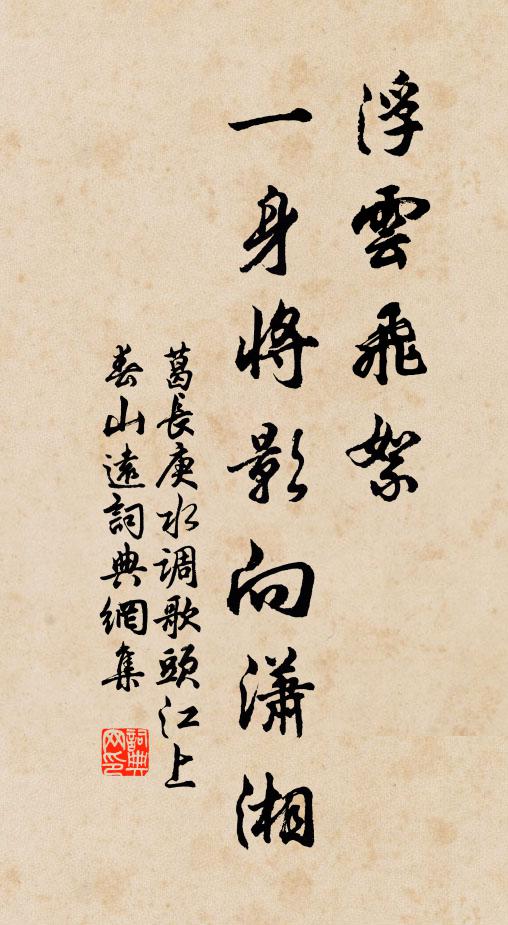 浮雲飛絮
一身將影向瀟湘
葛長庚水调歌頭江上
春山遠詞典網集
詞典网印